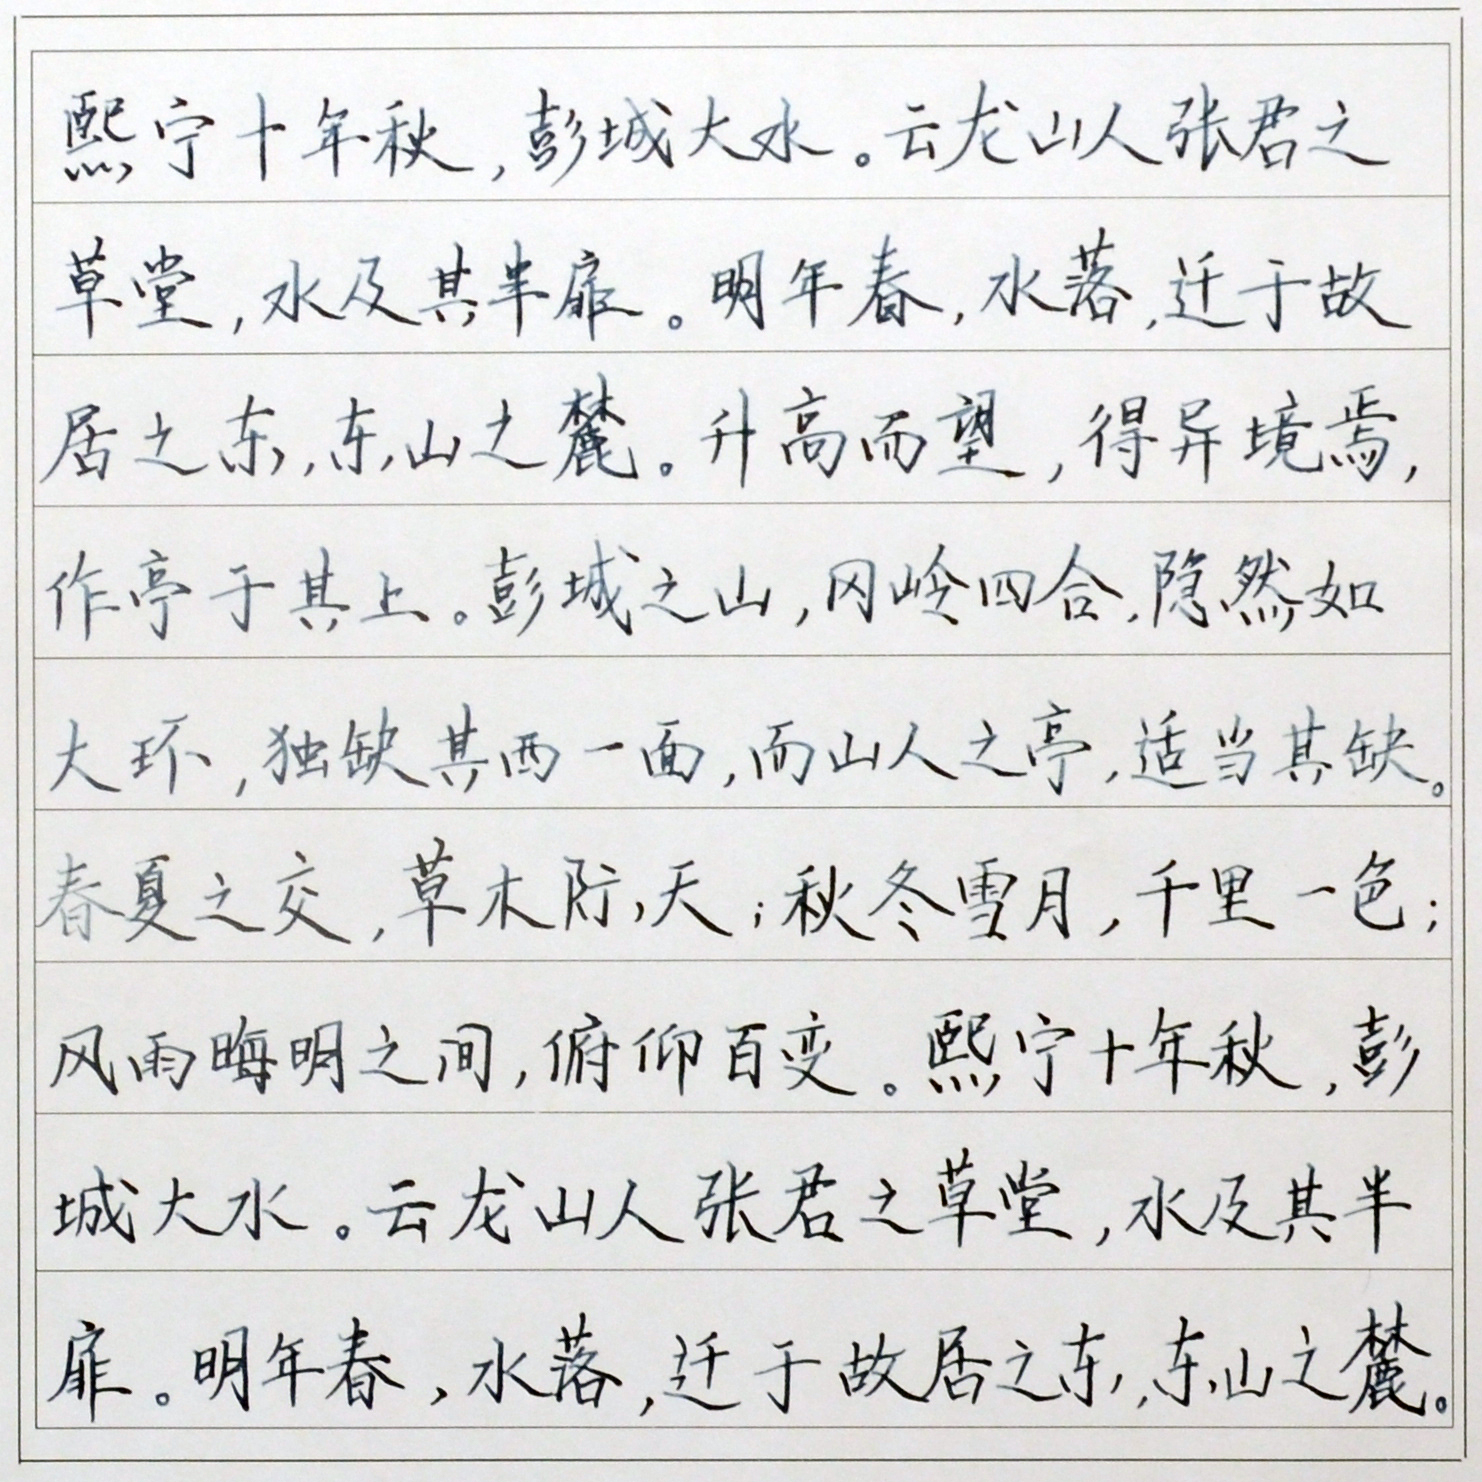 熙宁十年秋，彭城大水。云龙山人张君之
草堂，水及其半扉。明年春，水落，迁于故
居之东，东山之麓。升高而望，得异境焉，
作亭于其上。彭城之山，冈岭四合，隐然如
大环，独缺其西一面，而山人之亭，适当其缺。
春夏之交，草木际天；秋冬雪月，千里一色；
风雨晦明之间，俯仰百变。熙宁十年秋，彭
城大水。云龙山人张君之草堂，水及其半
扉。明年春，水落，迁于故居之东，东山之麓。